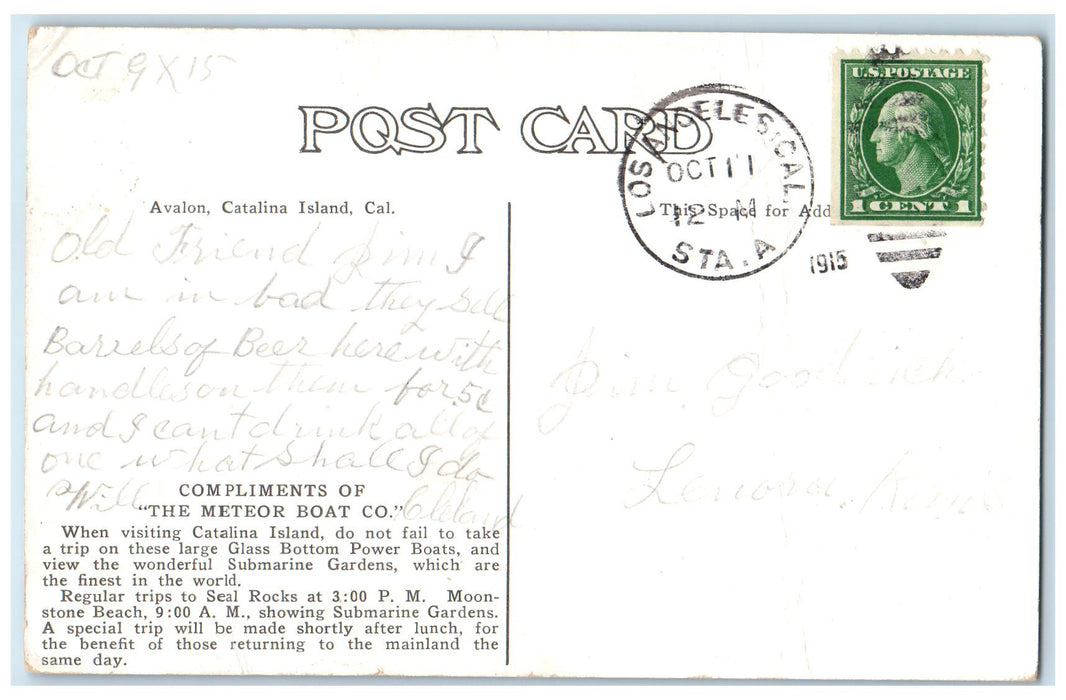 OCT 9 X 15
POST CARD
U.S. POSTAGE
1 CENT 1
LOS ANGELES, CAL.
OCT 11
12 M
STA. A
1915
Avalon, Catalina Island, Cal.
This Space for Add
Old Friend Jim I
am in bad they sell
Barrels of Beer here with
handles on them for 5c
and I cant drink all of
one what shall I do
Will Cleland
Jim
Lenora, Kans
COMPLIMENTS OF
"THE METEOR BOAT CO."
When visiting Catalina Island, do not fail to take
a trip on these large Glass Bottom Power Boats, and
view the wonderful Submarine Gardens, which are
the finest in the world.
Regular trips to Seal Rocks at 3:00 P. M. Moon-
stone Beach, 9:00 A. M., showing Submarine Gardens.
A special trip will be made shortly after lunch, for
the benefit of those returning to the mainland the
same day.